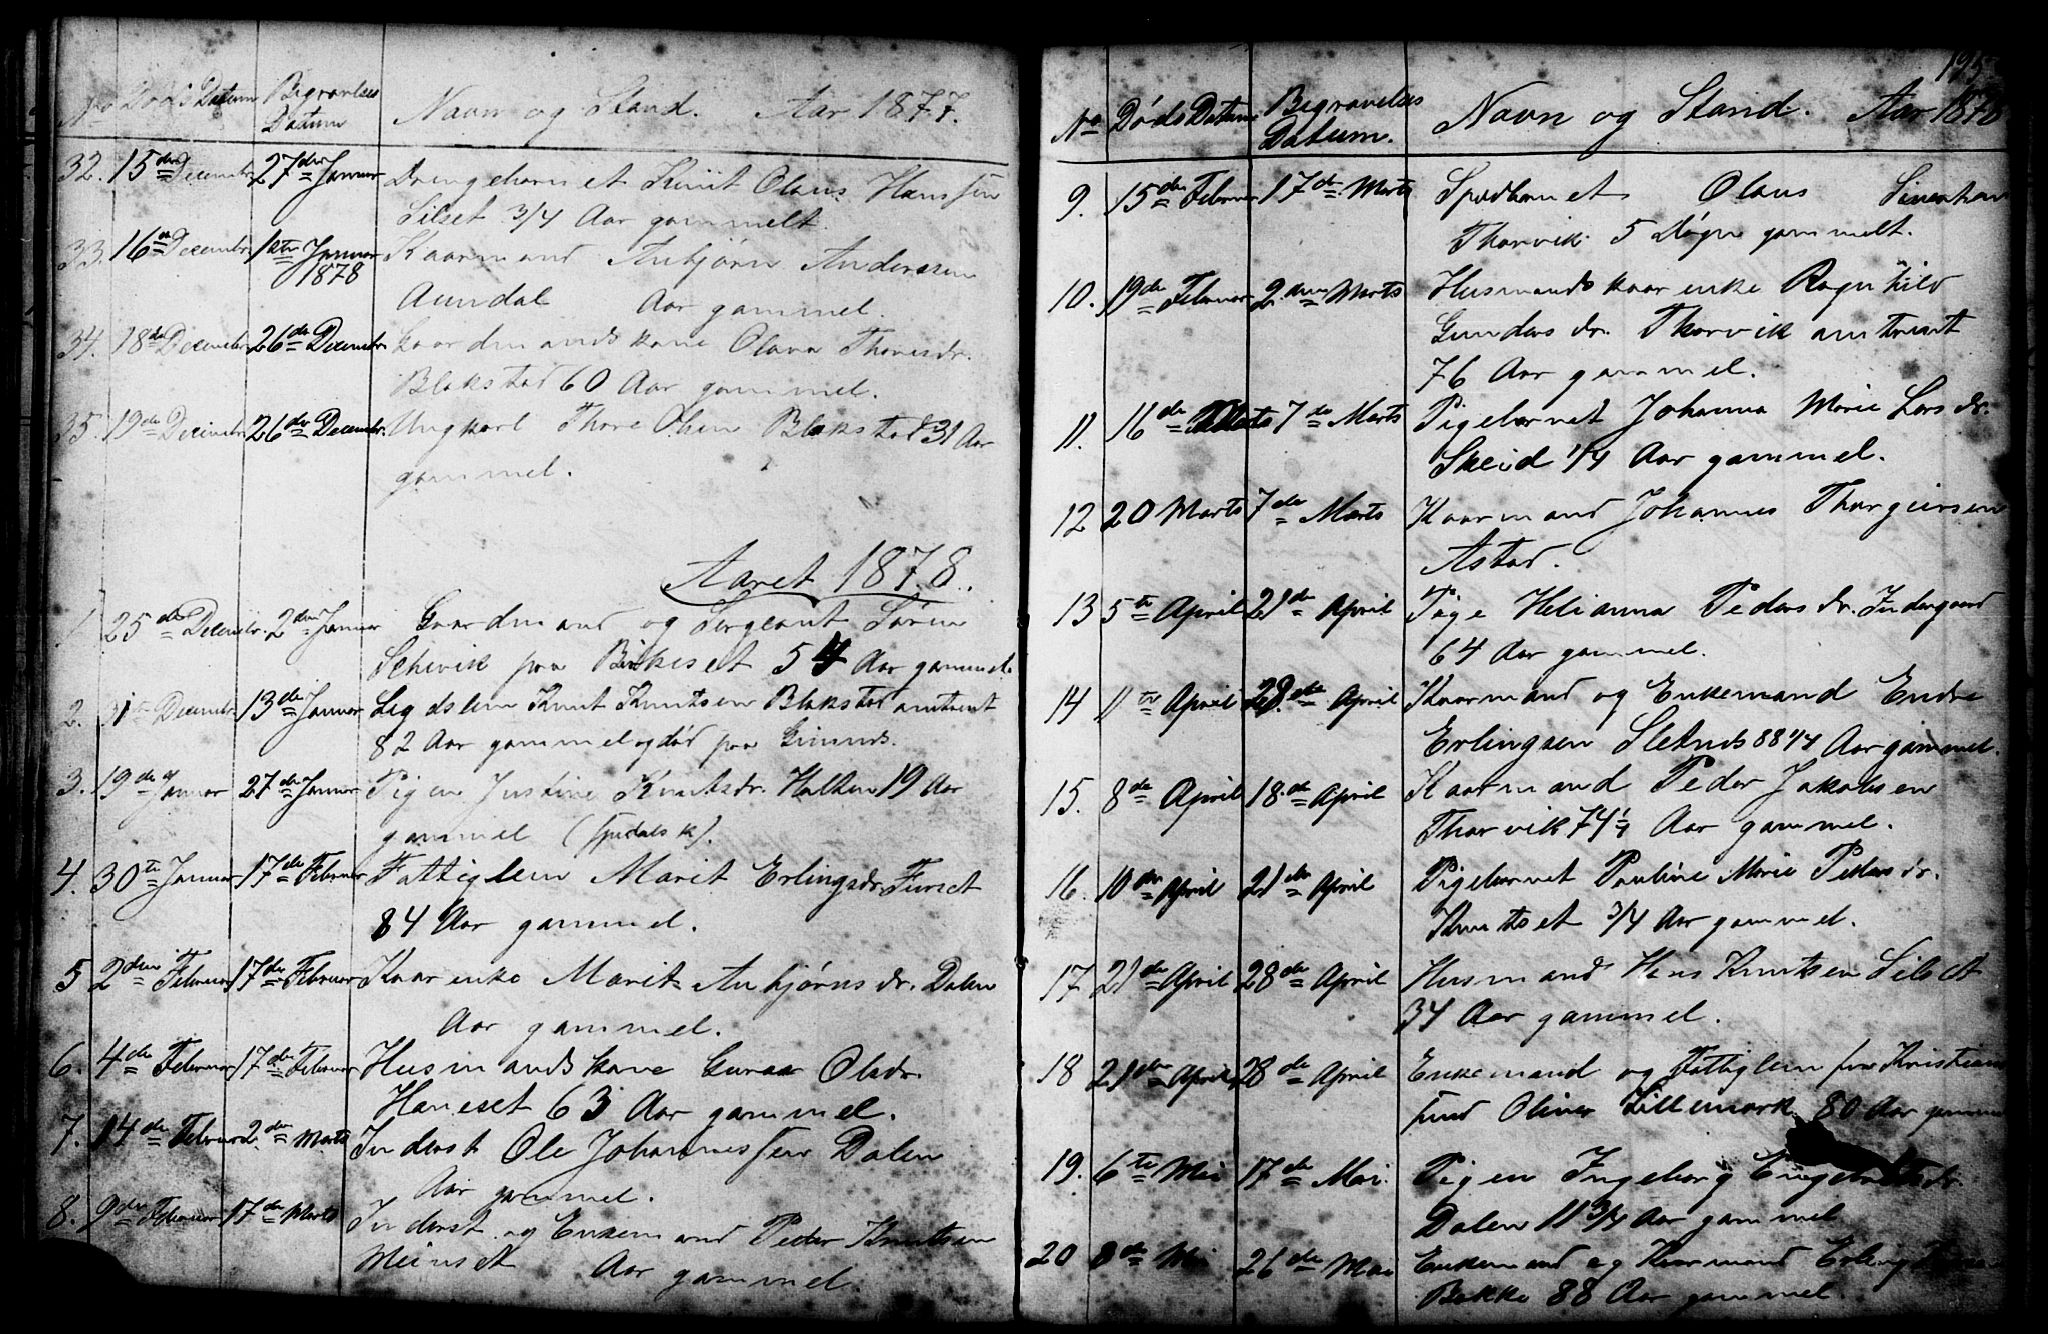 No Døds Datum Begravelses Datum Navn og Stand. Aar 1877.
32. 15de December 27de Januar Drengebarnet Knut Olaus Hanssen
Silset 3/4 Aar gammelt.
33. 16de December 1ste Januar 1878 Kaarmand Anbjørn Anderssen
Aundal Aar gammel.
34. 18de December 26de December Gaardmandskone Olava Thoresdr.
Blakstad 60 Aar gammel.
35. 19de December 26de December. Ungkarl Thore Olsen Blakstad 31 Aar
gammel.
Aaret 1878.
1. 25de December 2den Januar Gaardmand og Sergeant Søren
paa 54 Aar gammel.
2. 31te December 13de Januar Lægdslem Knut Knutsen Blakstad omtrent
82 Aar gammel og død paa
3. 19de Januar 27de Januar Pigen Justine Knutsdr. Halten 19 Aar
gammel (spedalsk).
4. 30te Januar 17de Februar Fattiglem Marit Erlingsdr. Furset
84 Aar gammel.
5 2den Februar 17de Februar Kaarenke Marit Anbjørnsdr. Dalen
Aar gammel.
6. 4de Februar 17de Februar Husmandskone Guraa Olsdr.
Haneset 63 Aar gammel.
7. 14de Februar 2den Marts Inderst Ole Johannessen Dalen
Aar gammel.
8. 9de Februar 17de Marts Inderst og Enkemand Peder Knutsen
Meinset Aar gammel.
195
No Døds Datum. Begravelses Datum. Navn og Stand. Aar 1878
9. 15de Februar 17de Marts Spædbarnet Olaus
Thorvik 5 Døgn gammelt.
10. 19de Februar 2den Marts Husmandskaarenke Ragnhild
Gundersdr. Thorvik omtrent
76 Aar gammel.
11. 16de 7de Marts Pigebarnet Johanna Marie Larsdr.
Skeid 1/4 Aar gammel.
12 20 Marts 7de Marts Kaarmand Johannes Thorgiersen
Astad.
13 5te April 21de April Pige Helianna Pedersdr. Indergaard
64 Aar gammel.
14 11te April 28.de April Kaarmand og Enkemand Endre
Erlingsen 88 1/4 Aar gammel.
15. 8de April 18.de April Kaarmand Peder Jakobsen
Thorvik 74 1/4 Aar gammel.
16. 10de April 21de April Pigebarnet Pauline Marie Pedersdr.
Knutset 3/4 Aar gammel.
17 21de April 28de April Husmand Hans Knutsen Silset
34 Aar gammel.
18 21de April 28de April Enkemand og Fattiglem fra Kristian
sund Oliver Lillemork. 80 Aar gammel
19. 6te Mai 17de Mai. Pigen Ingeborg Engebretsdr.
Dalen 11 3/4 Aar gammel
20 8de Mai 26de Mai Enkemand og Kaarmand Erling
Bakke 88 Aar gammel.